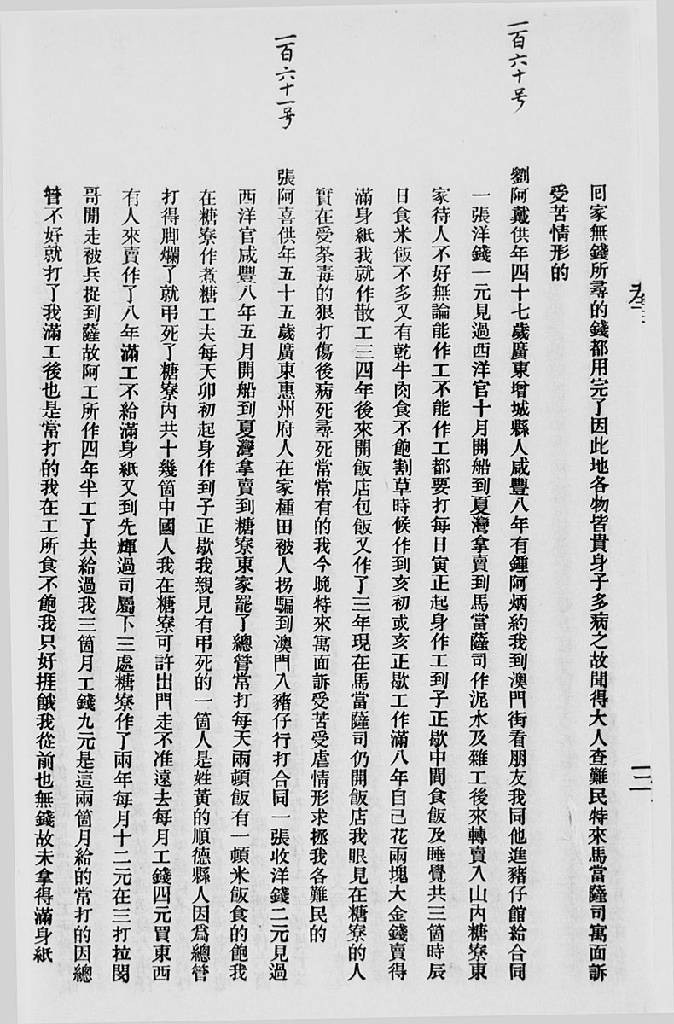 叄
三
回家無錢所尋的錢都用完了因此地各物皆貴身子多病之故聞得大人查難民特來馬當薩司寓面訴
受苦情形的
一百六十号
劉阿戴供年四十七歲廣東增城縣人咸豐八年有鍾阿炳約我到澳門街看朋友我同他進豬仔館給合同
一張洋錢一元見過西洋官十月開船到夏灣拿賣到馬當薩司作泥水及雜工後來轉賣入山內糖寮東
家待人不好無論能作工不能作工都要打每日寅正起身作工到子正歇中間食飯及睡覺共三箇時辰
日食米飯不多又有乾牛肉食不飽割草時候作到亥初或亥正歇工作滿八年自己花兩塊大金錢賣得
滿身紙我就作散工三四年後來開飯店包飯又作了三年現在馬當薩司仍開飯店我眼見在糖寮的人
實在受荼毒的狠打傷後病死尋死常常有的我今晚特來寓面訴受苦受虐情形求拯我各難民的
一百六十一号
張阿喜供年五十五歲廣東惠州府人在家種田被人拐騙到澳門入豬仔行打合同一張收洋錢二元見過
西洋官咸豐八年五月開船到夏灣拿賣到糖寮東家罷了總管常打每天兩頓飯有一頓米飯食的飽我
在糖寮作煮糖工夫每天卯初起身作到子正歇我親見有弔死的一箇人是姓黃的順德縣人因爲總管
打得脚爛了就弔死了糖寮內共十幾箇中國人我在糖寮可許出門走不准遠去每月工錢四元買東西
有人來賣作了八年滿工不給滿身紙又到先輝過司屬下三處糖寮作了兩年每月十二元在三打拉閔
哥閒走被兵捉到薩故阿工所作四年半工了共給過我三箇月工錢九元是這兩箇月給的常打的因總
管不好就打了我滿工後也是常打的我在工所食不飽我只好捱餓我從前也無錢故未拿得滿身紙